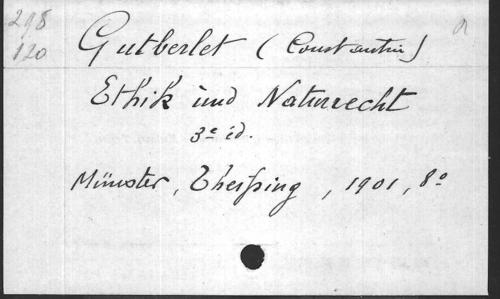 298
120
Gutberlet (Constantin)
Ethik und Naturrecht
3e éd.
Münster, Theissing, 1901, 8º